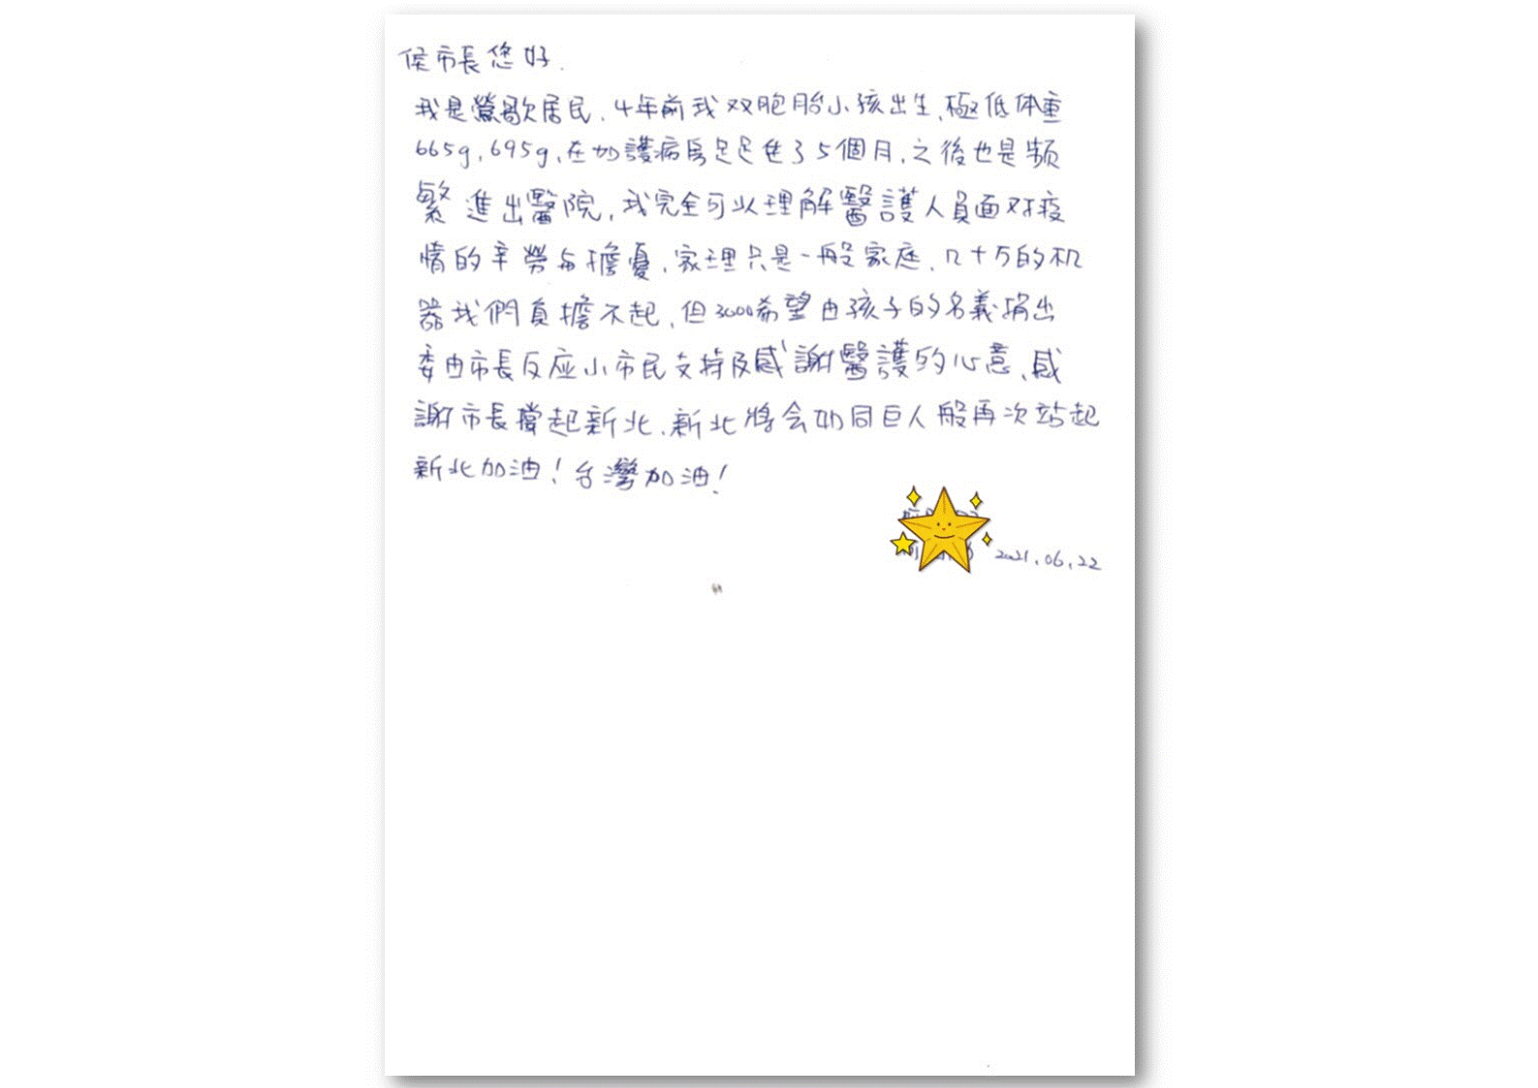 侯市長您好.
我是鶯歌居民,4年前我双胞胎小孩出生,極低体重
665g,695g,在加護病房足足住了5個月,之後也是頻
繁進出醫院,我完全可以理解醫護人員面对疫
情的辛勞与擔憂,家理只是一般家庭,几十万的机
器我們負擔不起,但3000希望由孩子的名義捐出
委由市長反应小市民支持及感謝醫護的心意,感
謝市長撐起新北,新北將会如同巨人般再次站起
新北加油!台灣加油!
2021.06.22